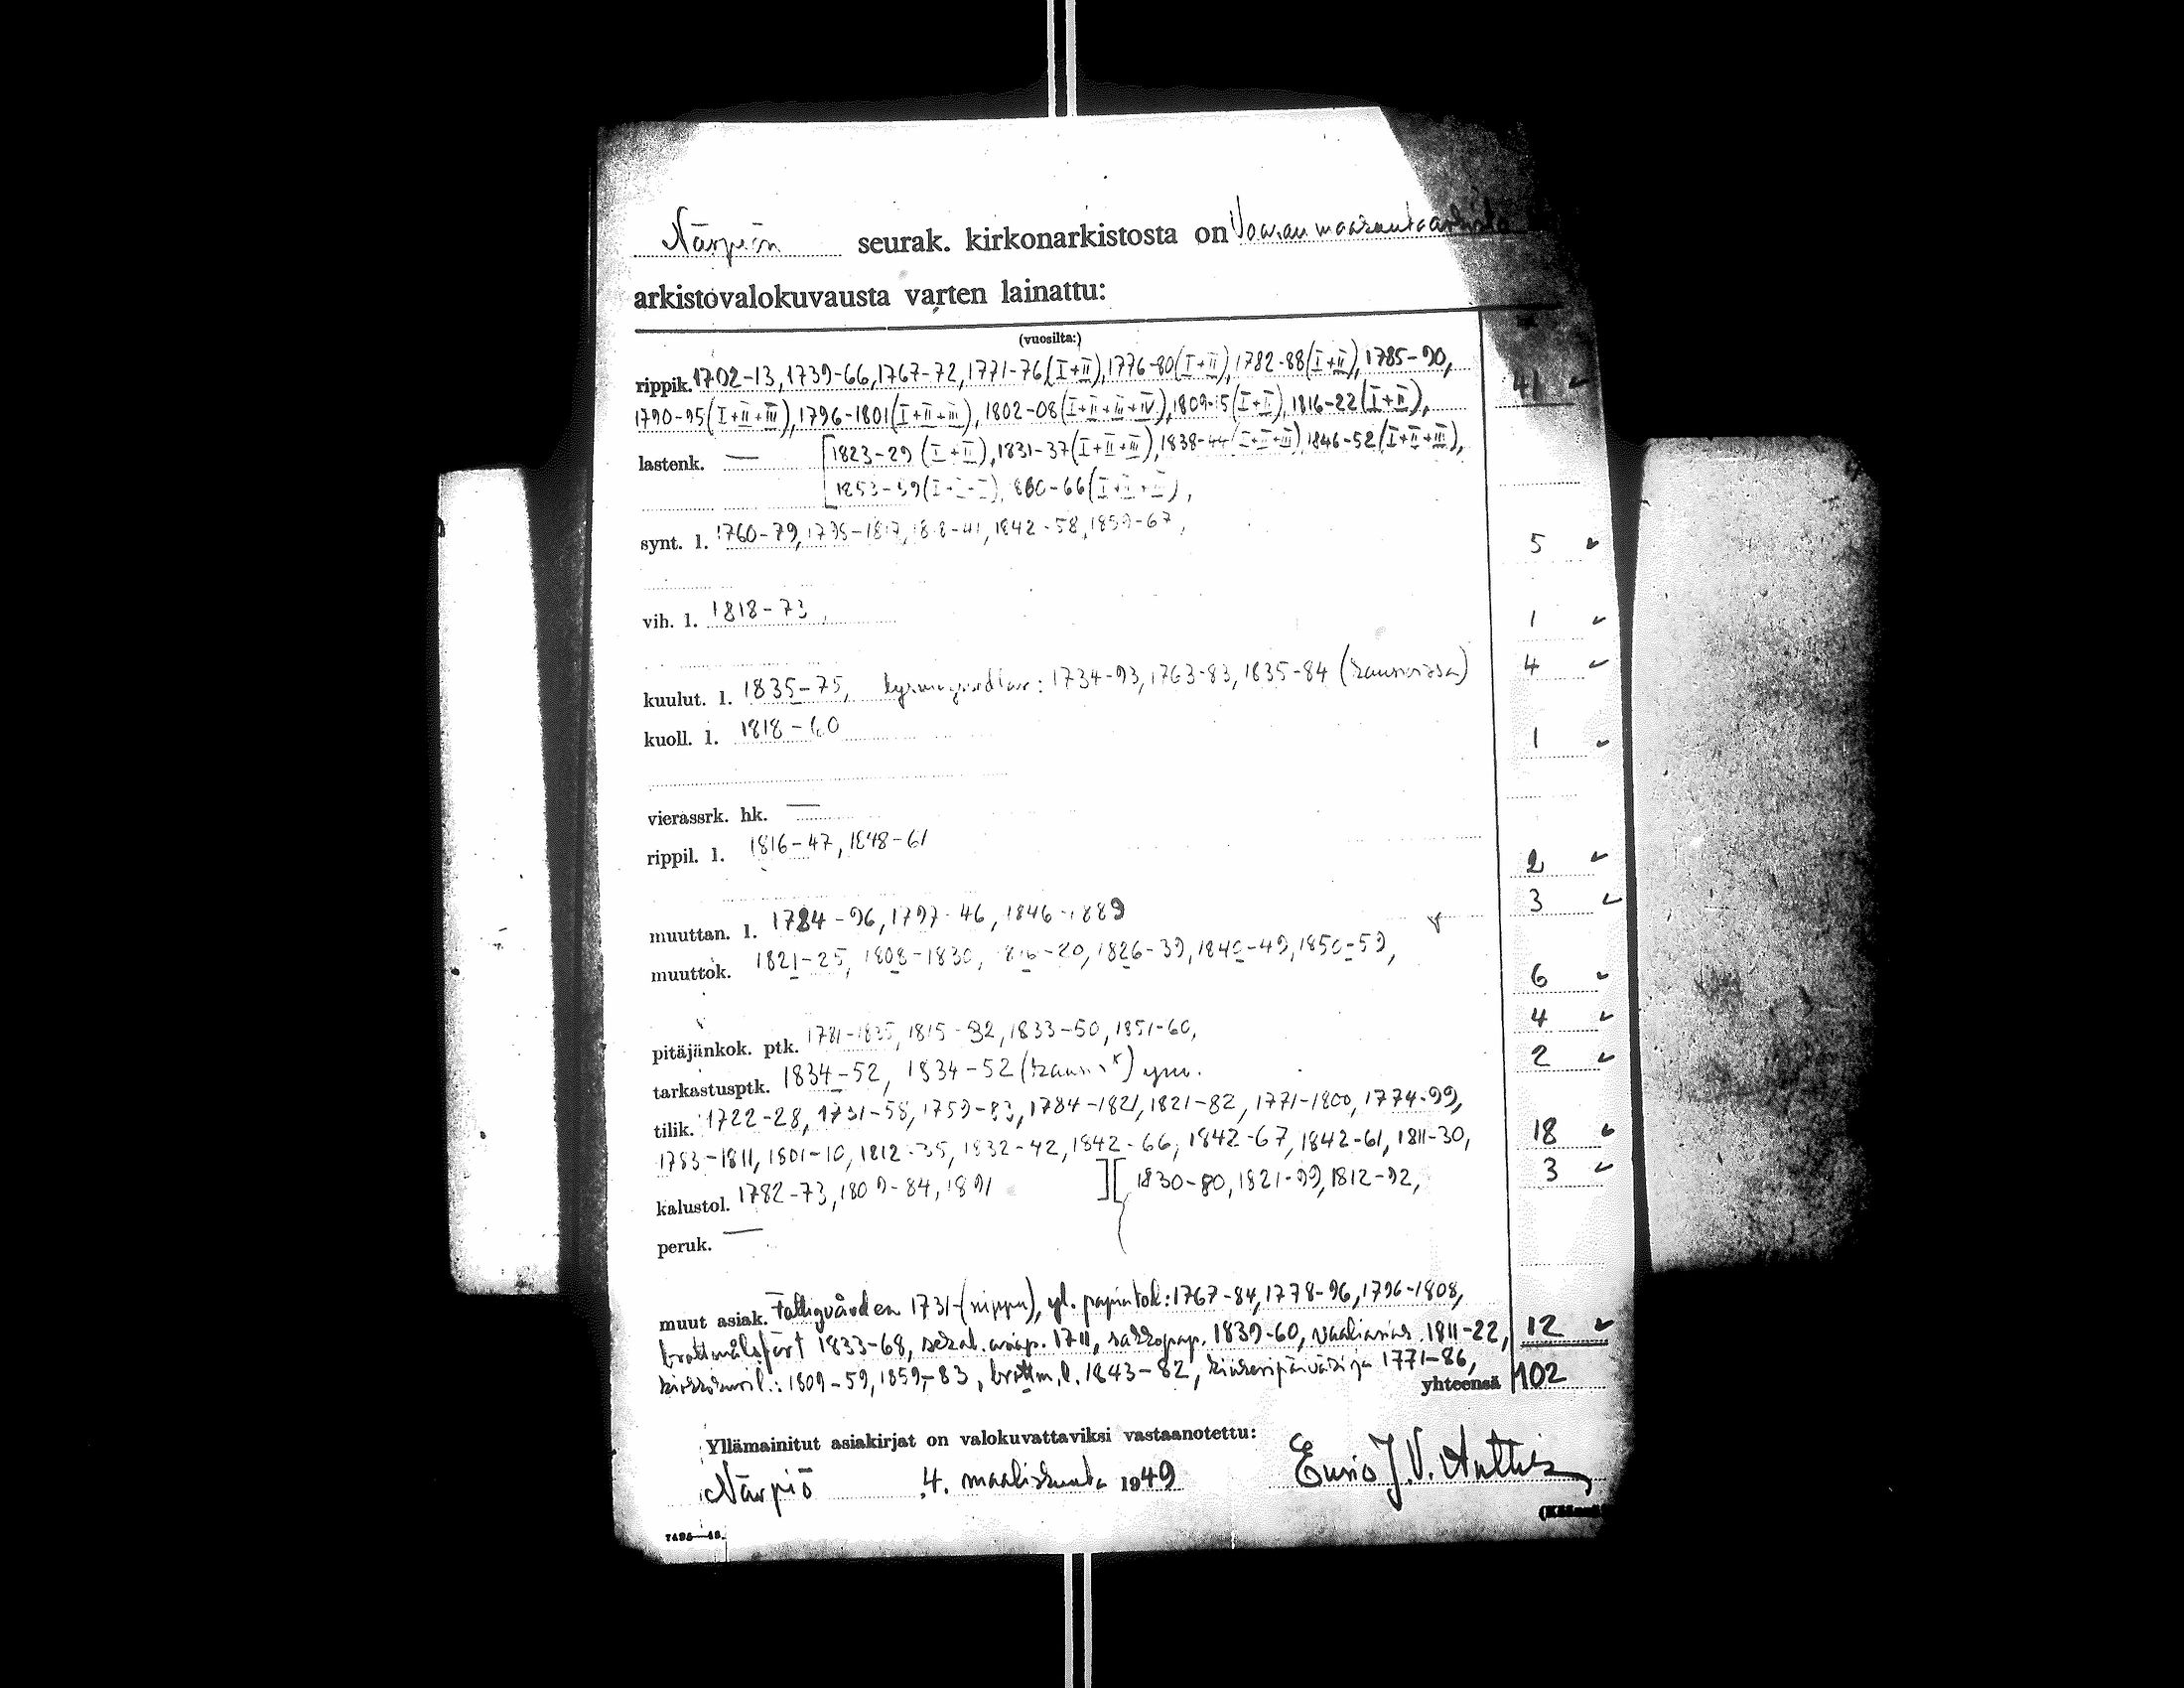 Närpiön seurak. kirkonarkistosta on Vaasan maakunta-arkisto
arkistovalokuvausta varten lainattu:
(vuosilta:)
rippik. 1702-13, 1739-66, 1767-72, 1771-76 (I+II), 1776-80 (I+II), 1782-88 (I+II), 1785-90, 41
1790-95 (I+II+III), 1796-1801 (I+II+III), 1802-08 (I+II+III+IV), 1809-15 (I+II), 1816-22 (I+II),
lastenk. — [1823-29 (I+II), 1831-37 (I+II+III), 1838-44 (I+II+III) 1846-52 (I+II+III),
1853-59 (I+I+I), 1860-66 (I+II+III),
synt. l. 1760-79, 1795-1817, 1818-41, 1842-58, 1859-67, 5
vih. l. 1818-73, 1
kuulut. l. 1835-75, 1734-93, 1763-83, 1835-84 (kansiossa) 4
kuoll. l. 1818-60 1
vierassrk. hk. —
rippil. l. 1816-47, 1848-61 2
muuttan. l. 1784-96, 1797-46, 1846-1889 3
muuttok. 1821-25, 1808-1830, 1816-20, 1826-39, 1840-49, 1850-59, 6
pitäjänkok. ptk. 1781-1835, 1815-32, 1833-50, 1851-60, 4
tarkastusptk. 1834-52, 1834-52 2
tilik. 1722-28, 1731-58, 1759-83, 1784-1821, 1821-82, 1771-1800, 1774-99,
1783-1811, 1801-10, 1812-35, 1832-42, 1842-66, 1842-67, 1842-61, 1811-30, 18
kalustol. 1782-73, 1809-84, 1891 ][ 1830-80, 1821-99, 1812-92, 3
peruk. —
muut asiak. Fattigvården 1731-(nippu), yl. paperitok: 1767-84, 1778-96, 1796-1808,
brottmålsfört 1833-68, sekal. asiap. 1711, sakkopap. 1839-60, vaaliasiat 1811-22, 12
1809-59, 1859-83, brottm. l. 1843-82, kinkeripäiväkirja 1771-86,
yhteensä 102
Yllämainitut asiakirjat on valokuvattaviksi vastaanotettu:
Närpiö 4. maaliskuuta 1949 J. V.